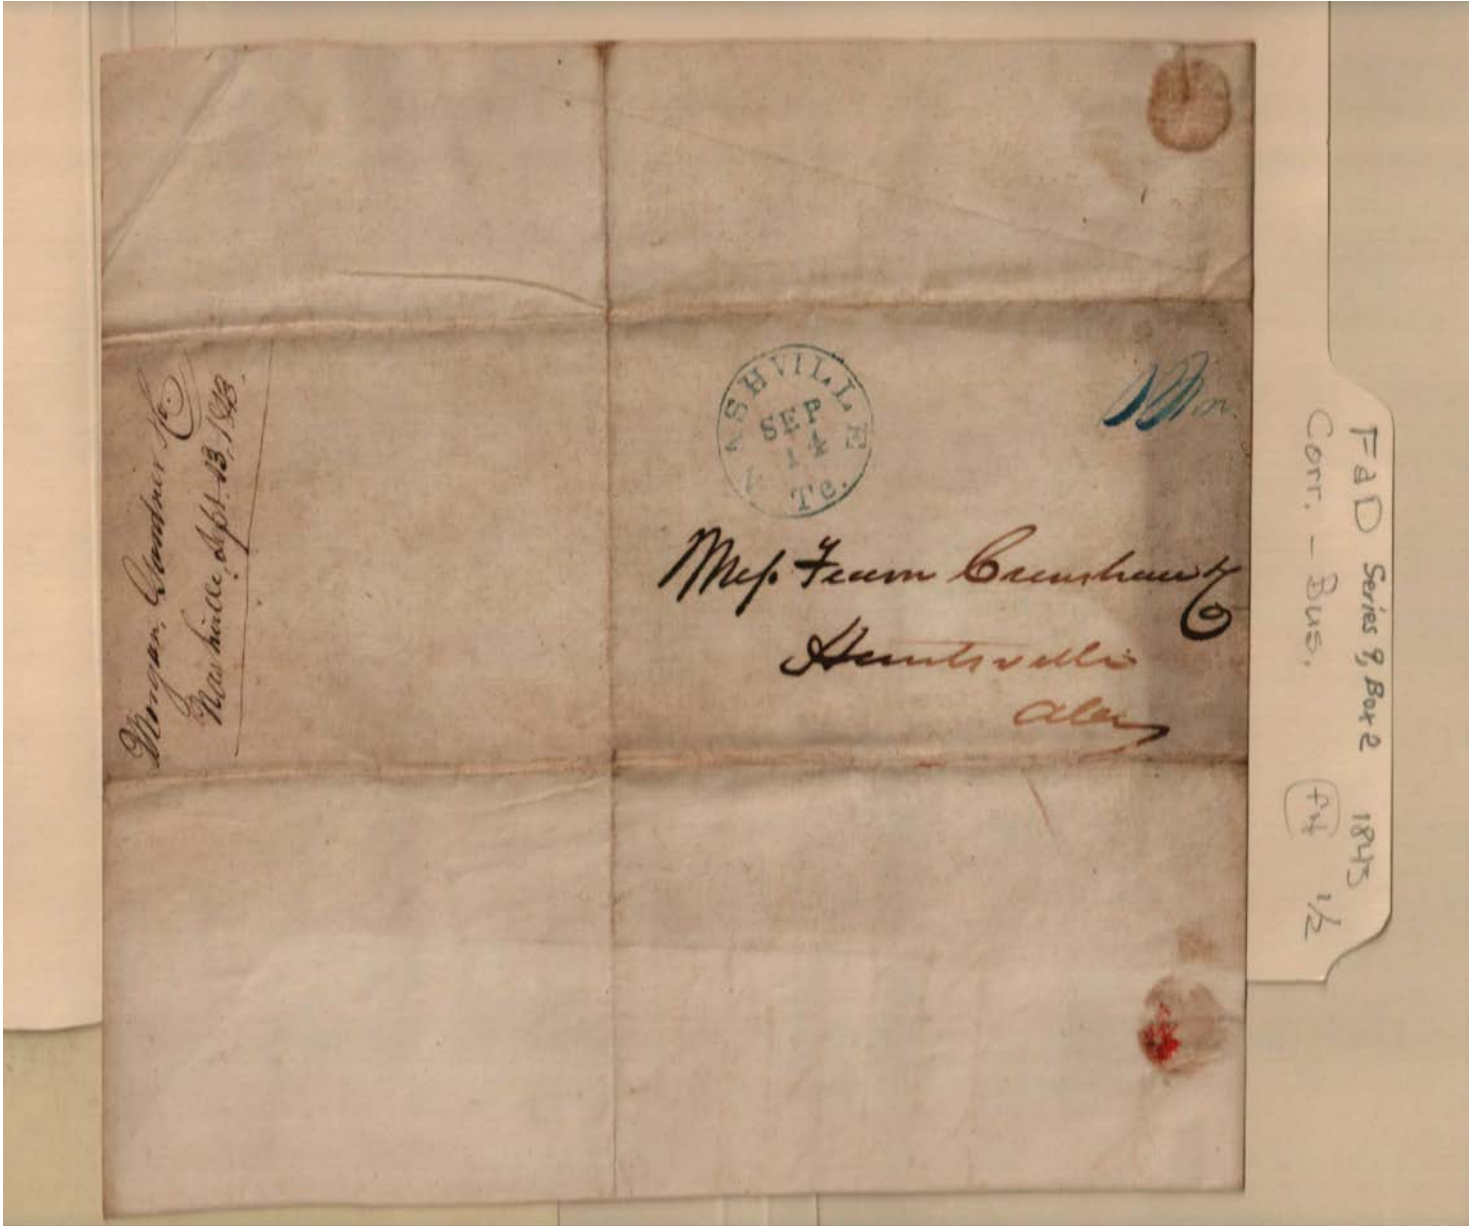 Morgan, Gardner & Co.
Nashville, Sept. 13, 1843.
NASHVILLE
SEP
14
Te.
Mess. Fearn Crenshaw & Co
Huntsville
Ala
FaD Series 9, Box 2 1843 1/2
Corr. - Bus. f4